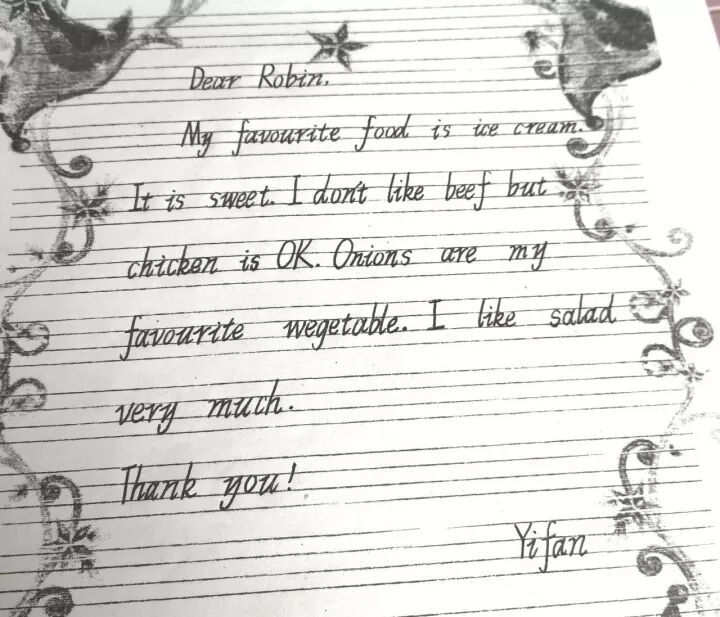 Dear Robin.
My favourite food is ice cream.
It is sweet. I don't like beef but
chicken is OK. Onions are my
favourite wegetable. I like salad
very much.
Thank you!
Yifan